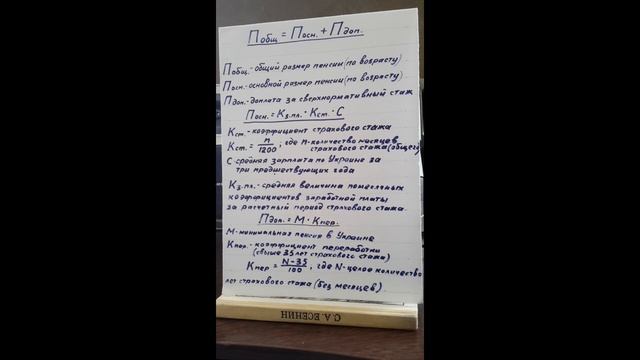 Побщ = Посн. + Пдоп.
Побщ. - общий размер пенсии (по возрасту)
Посн. - основной размер пенсии (по возрасту)
Пдоп. - доплата за сверхнормативный стаж
Посн. = Кз.пл. · Кст. · С
Кст. - коэффициент страхового стажа
Кст. = n/1200, где n - количество месяцев
страхового стажа (общего)
С - средняя зарплата по Украине за
три предшествующих года
Кз.пл. - средняя величина помесячных
коэффициентов заработной платы
за расчетный период страхового стажа.
Пдоп. = М · Кпер.
М - минимальная пенсия в Украине
Кпер. - коэффициент переработки
(свыше 35 лет страхового стажа)
Кпер = N-35/100, где N - целое количество
лет страхового стажа (без месяцев)
С.А. ЕСЕНИН